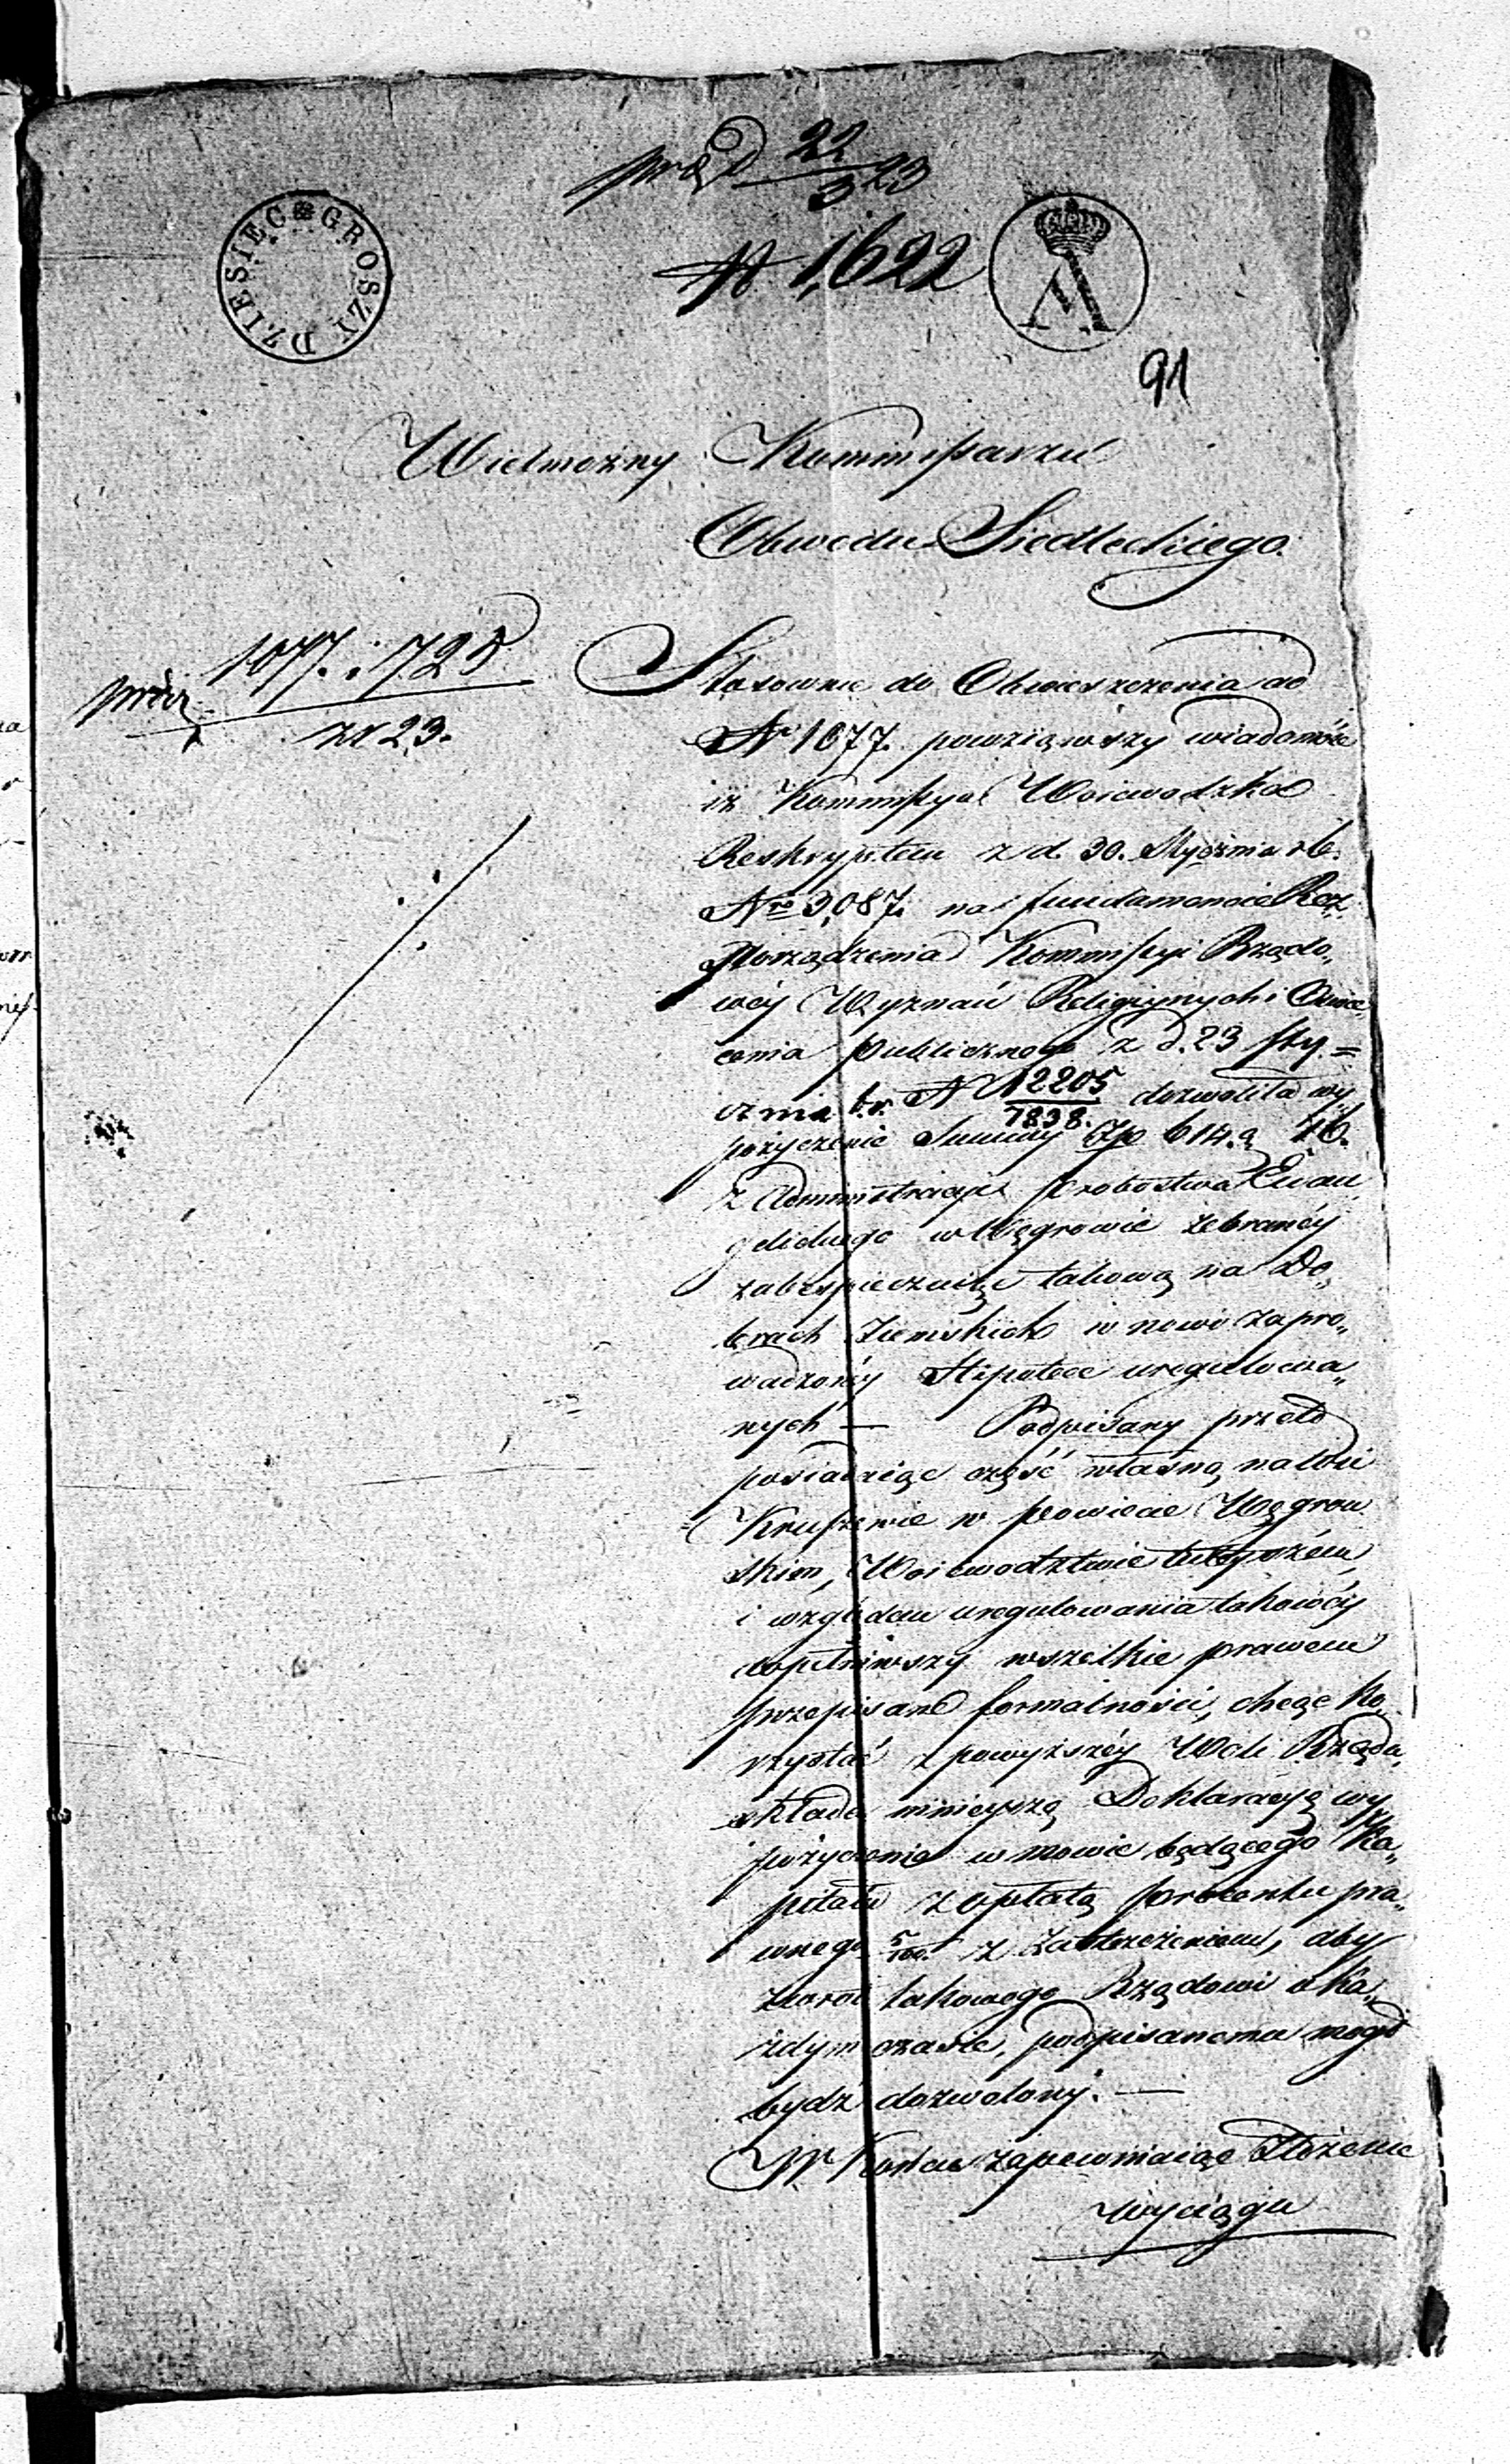 22/3 23
№ 1,622
DZIESIĘC GROSZY
91
Wielmożny Kommissarzu
Obwodu Siedleckiego.
1077. i 725
zr 23.
Stosownie do Obwieszczenia ad
Nr 1077. powziąwszy wiadomość
iż Kommissya Woiewodzka
Reskryptem z d. 30. Stycznia rb.
Nro 3,087. na fundamencie Roz„
porządzenia Kommissyi Rządo„
wéy Wyznań Religiynych i Oświe„
cenia publicznego z d. 23 Sty=
cznia b.r. N 12205/7838. dozwoliła wy
pożyczenie Summy Zp 614. g 16.
z Administracyi probostwa Ewan
gelickiego w Węgrowie zebranéy
zabespieczaiąc takową na Do„
brach Ziemskich w nowo zapro„
wadzonéy Hipotece uregulowa„
nych — Podpisany przeto
posiadaiąc część własną na Wsi
Kruszewie w powiecie Węgrow
skim, Woiewodztwie tuteyszém,
i względem uregulowania takowéy
dopełniwszy wszelkie prawem
przepisane formalności, chcąc ko„
rzystać z powyższéy Woli Rządu,
składa ninieyszą Deklaracyą wy
pożyczenia w mowie będącego Ka„
pitału z opłatą procentu pra„
wnego 5/100. z zastrzeżeniem, aby
zwrot takowego Rządowi w ka„
żdym czasie, podpisanemu mógł
bydź dozwolony. —
W Końcu zapewniaiąc złożenie
wyciągu